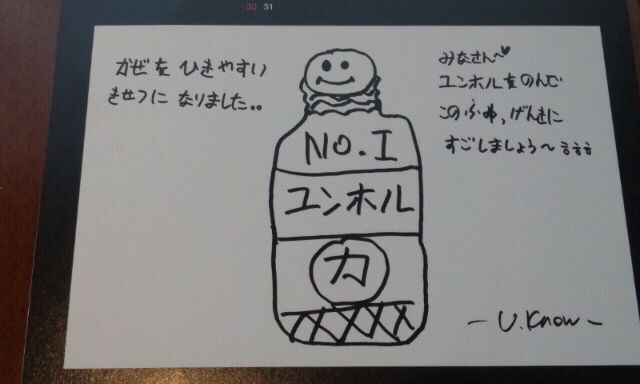 30 31
かぜを ひきやすい
きせつに なりました..
みなさん〜♥
ユンホルをのんで
このふゆ、げんきに
すごしましょう〜 ㅎㅎㅎ
NO.I
ユンホル
力
- U.Know -